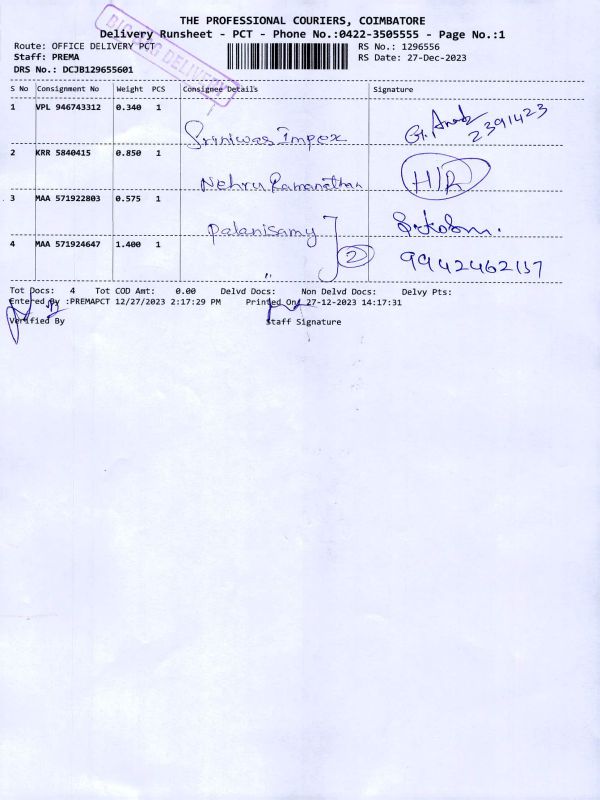 THE PROFESSIONAL COURIERS, COIMBATORE
Delivery Runsheet - PCT - Phone No.:0422-3505555 - Page No.:1
BIG BAG DELIVERY
Route: OFFICE DELIVERY PCT
RS No.: 1296556
Staff: PREMA
RS Date: 27-Dec-2023
DRS No.: DCJB129655601
S No Consignment No Weight PCS Consignee Details Signature
1 VPL 946743312 0.340 1
Sriniwas Impex
2391423
2 KRR 5840415 0.850 1
Nehru Ramanathan
H/R
3 MAA 571922803 0.575 1
Palanisamy
4 MAA 571924647 1.400 1
" 2
9942462137
Tot Docs: 4 Tot COD Amt: 0.00 Delvd Docs: Non Delvd Docs: Delvy Pts:
Entered By :PREMAPCT 12/27/2023 2:17:29 PM Printed On: 27-12-2023 14:17:31
Verified By Staff Signature